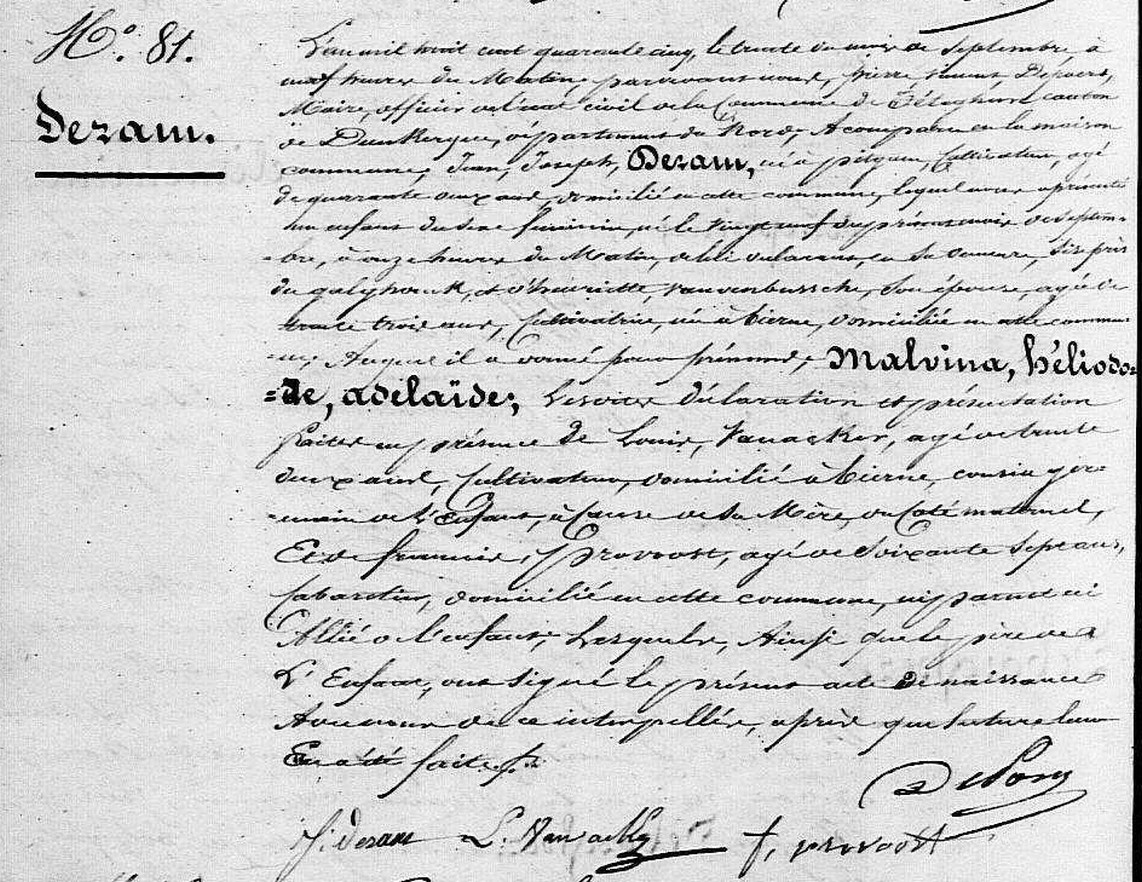 N.º 81.
Dezam.
L'an mil huit cent quarante cinq, le trente du mois de Septembre, à
neuf heures du Matin, pardevant nous, pierre vincent
Maire, officier de l'état civil de la Commune de Téteghem, canton
de Dunkerque, département du Nord, A comparu en la maison
commune, Jean, Joseph, Dezam, né à pitgam, Cultivateur, agé
de quarante deux ans, domicilié en cette commune, lequel nous a présenté
un enfant du sexe féminin, né le vingt neuf du présent mois de Septem-
-bre, à onze heures du Matin, de lui déclarant, en sa demeure, sise près
du galghouck, et d'henriette, vandenbussche, son épouse, agée de
trente trois ans, Cultivatrice, née à bierne, domiciliée en cette commu-
-ne, Auquel il a donné pour prénoms, Malvina, héliodo-
=re, adelaïde; Lesdites déclaration et présentation
faites en présence de Louis, Vanacker, agé de trente
deux ans, Cultivateur, domicilié à bierne, cousin ger-
-main de l'Enfant, à Cause de sa Mère, du Coté maternel,
Et de francois, Provoost, agé de soixante sept ans,
Cabaretier, domicilié en cette commune, ni parent ni
Allié à l'enfant, Lesquels, Ainsi que le père de
L'Enfant, ont signé le présent acte de naissance
Avec nous de ce interpellés, après que lecture leur
En a été faite.
J. dezam L. Vanacker f, provoost